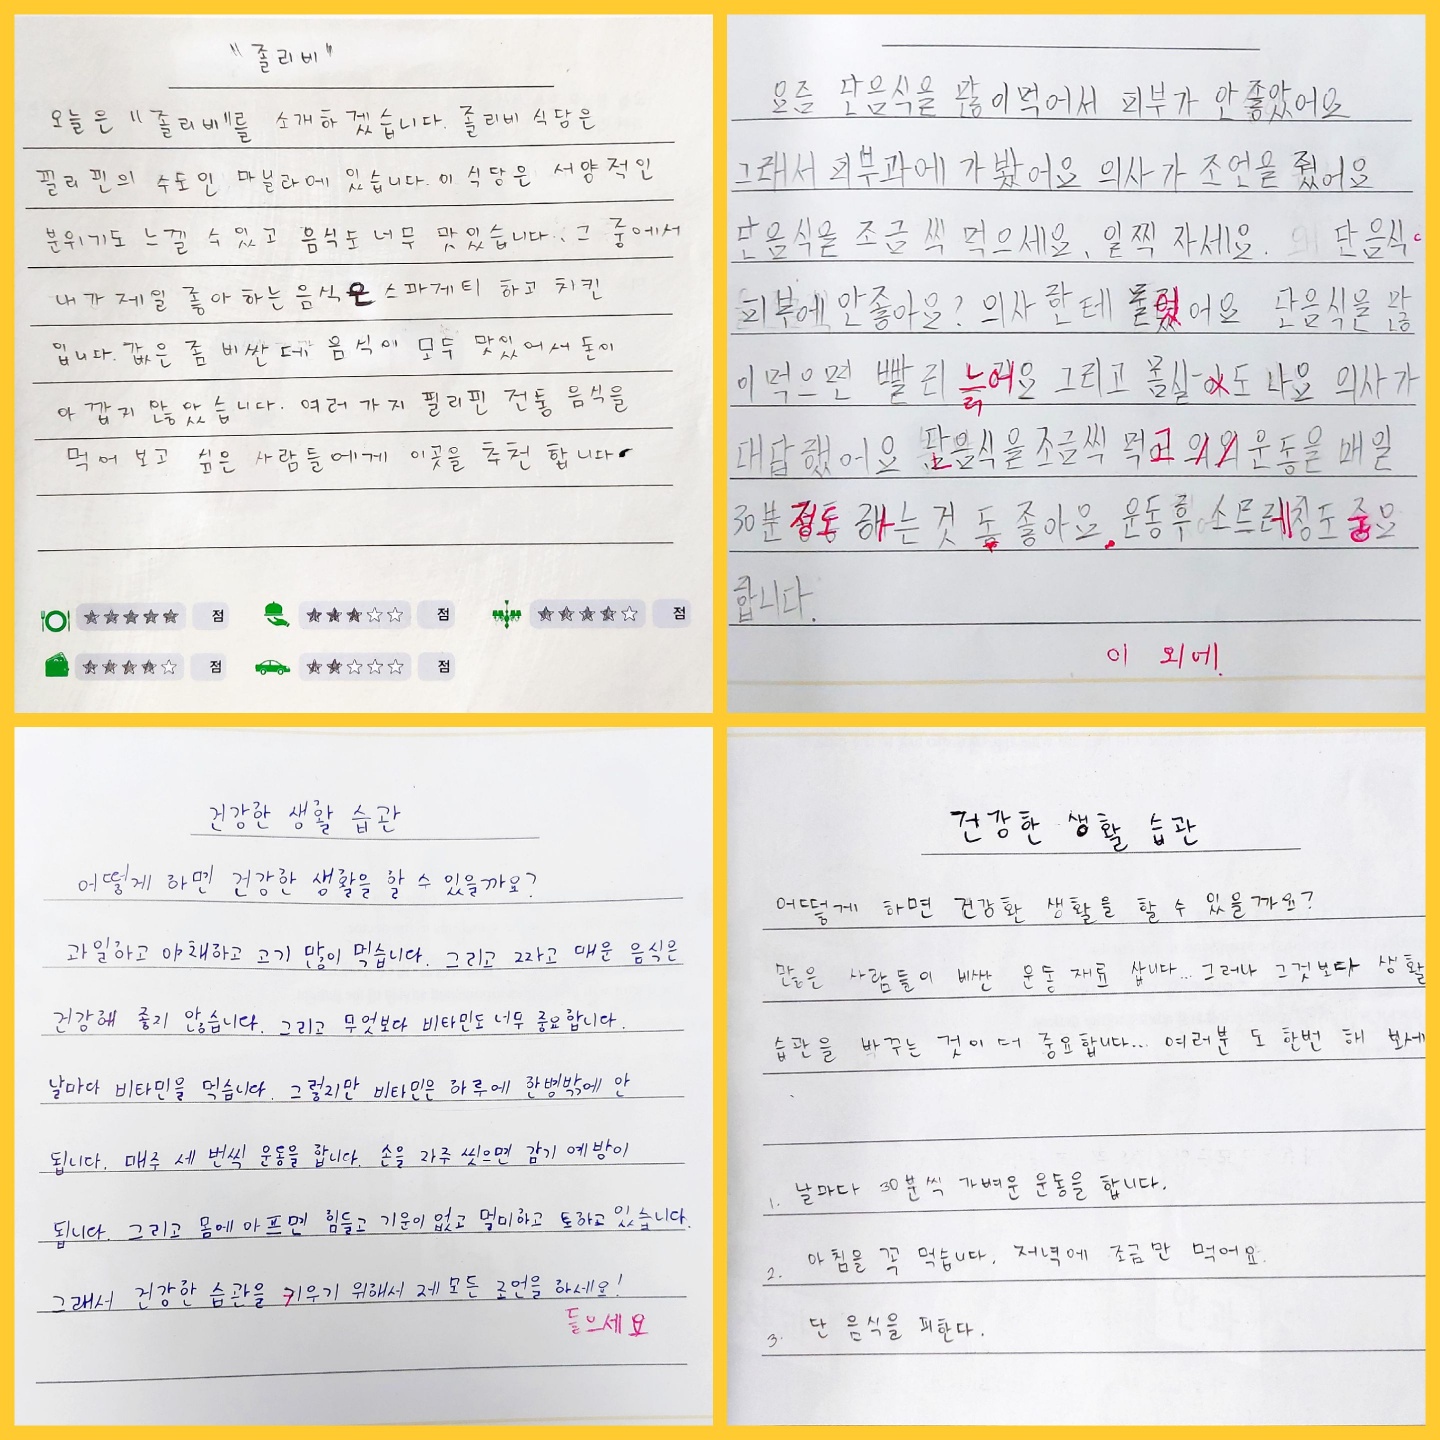 "졸리비"
오늘은 "졸리비"를 소개하겠습니다. 졸리비 식당은
필리핀의 수도인 마닐라에 있습니다. 이 식당은 서양적인
분위기도 느낄 수 있고 음식도 너무 맛있습니다. 그 중에서
내가 제일 좋아하는 음식은 스파게티 하고 치킨
입니다. 값은 좀 비싼데 음식이 모두 맛있어서 돈이
아깝지 않았습니다. 여러가지 필리핀 전통 음식을
먹어 보고 싶은 사람들에게 이곳을 추천 합니다
점 점 점
점 점
요즘 단음식을 많이먹어서 피부가 안좋았어요
그래서 피부과에 가봤어요 의사가 조언을 줬어요
단음식을 조금씩 먹으세요, 일찍 자세요. 단음식
피부에 안좋아요? 의사한테 물었어요 단음식을 많
이먹으면 빨리 늙어요 그리고 몸살도 나요 의사가
대답했어요 단음식을조금씩 먹고 의외 운동을 매일
30분 정도 하는 것 도 좋아요. 운동후 스트레칭도 중요
합니다.
이 외에
건강한 생활 습관
어떻게 하면 건강한 생활을 할 수 있을까요?
과일하고 야채하고 고기 많이 먹습니다. 그리고 짜고 매운 음식은
건강해 좋지 않습니다. 그리고 무엇보다 비타민도 너무 중요합니다.
날마다 비타민을 먹습니다. 그렇지만 비타민은 하루에 한병밖에 안
됩니다. 매주 세 번씩 운동을 합니다. 손을 자주 씻으면 감기 예방이
됩니다. 그리고 몸에 아프면 힘들고 기운이 없고 멀미하고 토하고 있습니다.
그래서 건강한 습관을 키우기 위해서 제 모든 조언을 하세요!
들으세요
건강한 생활 습관
어떻게 하면 건강환 생활을 할 수 있을까요?
많은 사람들이 비싼 운동 재료 삽니다... 그러나 그것보다 생활
습관을 바꾸는 것이 더 중요합니다... 여러분 도 한번 해 보세
1. 날마다 30분씩 가벼운 운동을 합니다.
2. 아침을 꼭 먹습니다. 저녁에 조금만 먹어요.
3. 단 음식을 피한다.